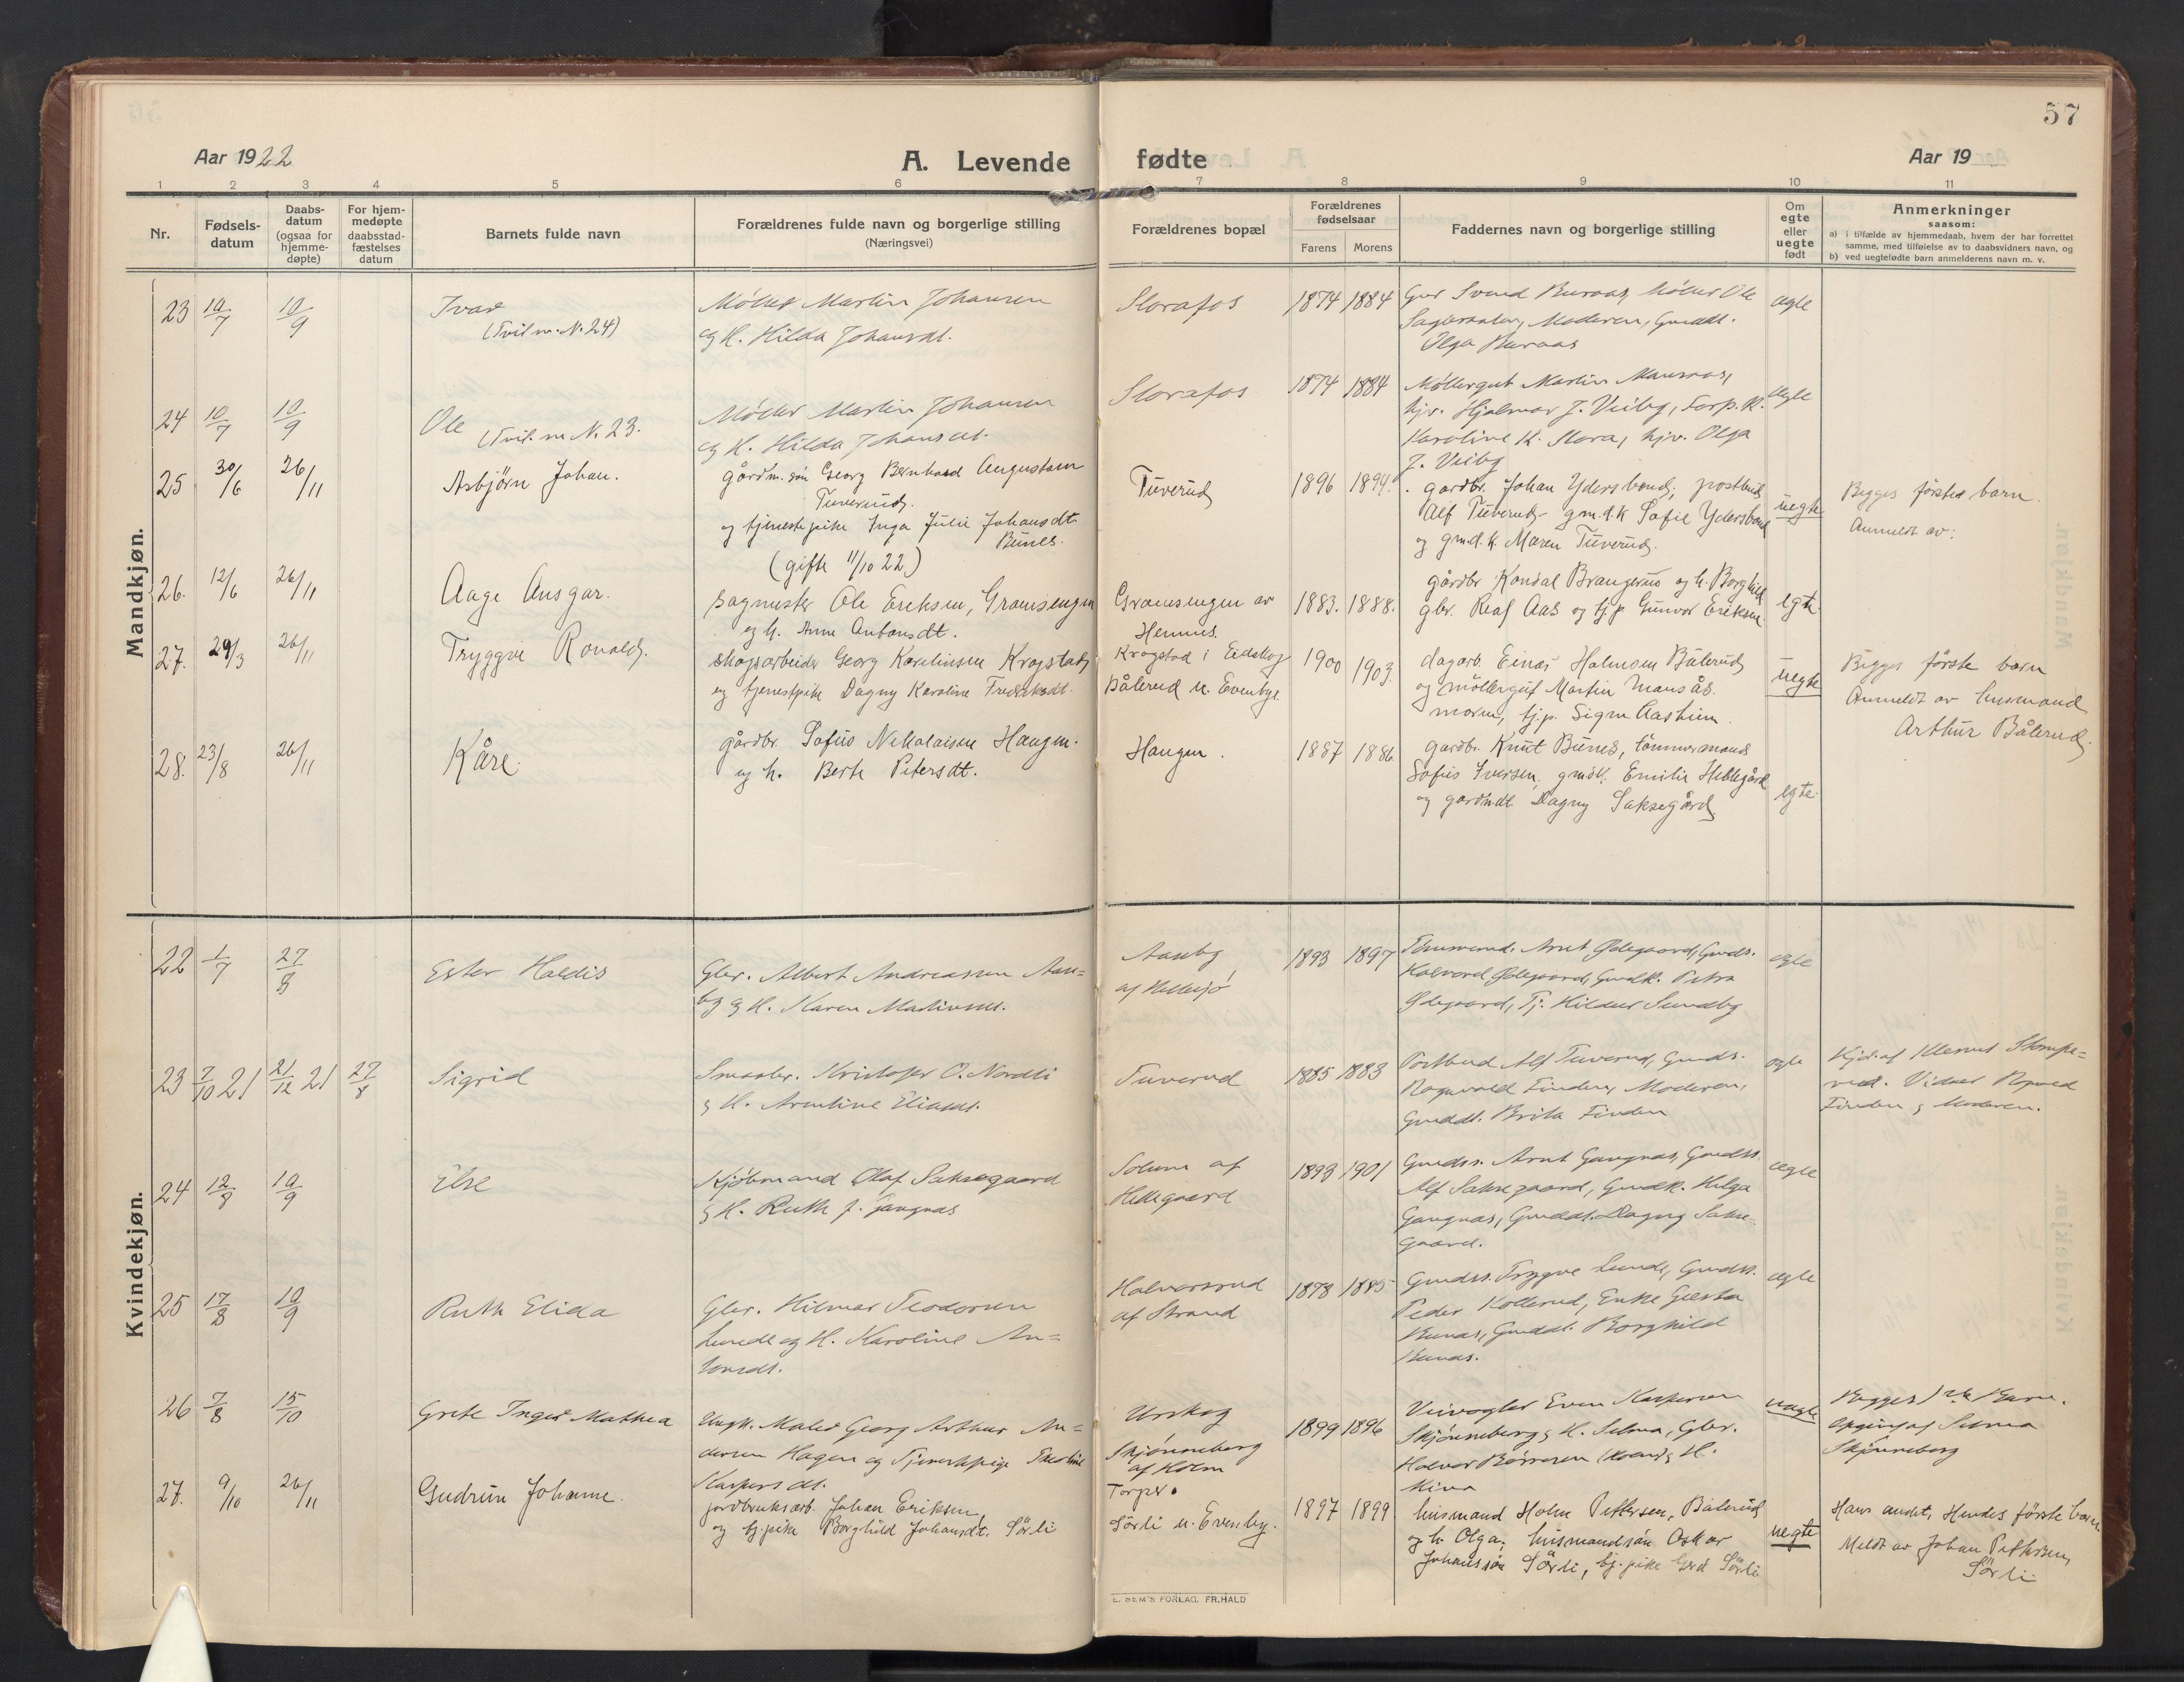 57
Aar 1922
A. Levende
fødte
Aar 19
1 2 3 4 5 6 7 8 9 10 11
Nr.
Fødsels-
datum
Daabs-
datum
(ogsaa for
hjemme-
døpte)
For hjem-
medøpte
daabsstad-
fæstelses
datum
Barnets fulde navn
Forældrenes fulde navn og borgerlige stilling
(Næringsvei)
Forældrenes bopæl
Forældrenes
fødselsaar
Farens Morens
Faddernes navn og borgerlige stilling
Om
egte
eller
uegte
født
Anmerkninger
saasom:
a) i tilfælde av hjemmedaab, hvem der har forrettet
samme, med tilføielse av to daabsvidners navn, og
b) ved uegtefødte barn anmelderens navn m. v.
Mandkjøn.
23 10/7 10/9
Ivar
(Tvil. m. N. 24)
Møller Martin Johansen
og H. Hilda Johansdt.
Slorafos
1874 1884
Gbr Svend Buraas, Møller Ole
Moderen, Gmddt.
Olga Buraas
egte
24 10/7 10/9
Ole (Tvil. m N. 23.
Møller Martin Johansen
og H. Hilda Johansdt.
Slorafos
1874 1884
Møllergut Martin Mansaas,
hjv. Hjalmar J. Viiby,
Karoline K. Slora, hjv. Olga
J. Viiby
egte
25 30/6 26/11
Asbjörn Johan.
gårdm. sön Georg Bernhard Augustsen
Tuverud.
og tjenestepike Inga Julie Johansdt.
Bunes.
(gifte 11/10 22)
Tuverud
1896 1894.
gardbr. Johan Ydersbond; postbud
Alf Tuverud - gm.d.k Sofie Ydersbond
og gm.d.k. Maren Tuverud.
uegte
Begges første barn.
Anmeldt av:
26. 12/6 26/11
Aage Ansgar.
sagmester Ole Eriksen, Gransengen
og h. Anne Antonsdt.
Gransengen av
Hennes.
1883. 1888.
gårdbr Kondal Brangerud og h. Borghild
gbr. Roaf Aas og tj.p Gunvor Eriksen.
egte
27. 29/3 26/11
Tryggve Ronald.
skogsarbeider Georg Karelinsen Krogstad
og tjenestpike Dagny Karoline Fredriksdt.
Krogstad i Eidskog
Bålerud u. Evenbye
1900 1903.
dagarb. Einar Halvorsen Bålerud
og möllergut Martin Mansås.
moren, tj.p. Signe Aasheim.
uegte
Begges förste barn
Anmeldt av husmand
Arthur Bålerud.
28. 23/8 26/11
Kåre.
gårdbr. Sofus Nikolaisen Haugen.
og h. Berte Petersdt.
Haugen.
1887 1886
gardbr. Knut Bunes, tömmermand
Sofus Iversen, gmdk. Emilie Hellegård
og gardmdt. Dagny Saksegård
egte.
Kvindekjøn.
22 1/7 27/8
Ester Haldis
Gbr. Albert Andreassen Aan-
by og H. Karen Martinsdt.
Aanby
af Hellesjø
1893 1897
Tømmermd. Arnt Ødegaard, Gmds.
Halvard Ødegaard, Gmdk. Petra
Ødegaard, Tj. Hildur Sundby
egte
23 7/10 21 21/12 21 27/8
Sigrid
Smaabr. Kristofer O. Nordli
og H. Arntine Eliasdt.
Tuverud
1885 1883
Postbud Alf Tuverud, Gmds.
Rognvald Finden, Moderen,
Gmddt. Brita Finden
egte
Hjd. af Klemet Stompe-
rud. Vidner Rogvald
Finden og Moderen.
24 12/8 10/9
Else
Kjøbmand Olaf Saksegaard
og H. Ruth f. Gangnæs
Solum af
Hellegaard
1893 1901
Gmdss. Arnt Gangnæs, Gmdss.
Alf Saksegaard, Gmdk. Helga
Gangnæs, Gmddt. Dagny Sakse-
gaard.
egte
25 17/8 10/9
Ruth Elida
Gbr. Hilmar Teodorsen
Lunde og H. Karoline An-
tonsdt.
Halvorsrud
af Strand
1878 1885
Gmdss. Trygve Lunde, Gmdss.
Peder Kollerud, Enke
Bunæs, Gmddt. Borghild
Bunæs.
egte
26 7/8 15/10
Grete Inger Mathea
Ungk. Maler Georg Arthur An-
dersen Hagen og Tjenestepige
Kaspersdt.
Urskog
Skjønneberg
af Holm
Torper.
1899 1896
Veivogter Even Kaspersen
Skjønneberg og H. Selma, Gbr.
Halvor Børresen og H.
Mina
uegte
Begges 1ste Barn.
Opgivet af Selma
Skjønneberg
27. 9/10 26/11
Gudrun Johanne.
jordbruksarb. Johan Eriksen,
og tj.pike Borghild Johansdt. Sörli
Sörli u. Evenby.
1897 1899
husmand Holm Pettersen, Bålerud
og h. Olga; husmandsön Oskar
Johansson Sörli, tj. pike Gerd Sörli
uegte
Hans andet, Hendes förste barn
Meldt av Johan Pettersen,
Sörli
E. SEM'S FORLAG, FR.HALD